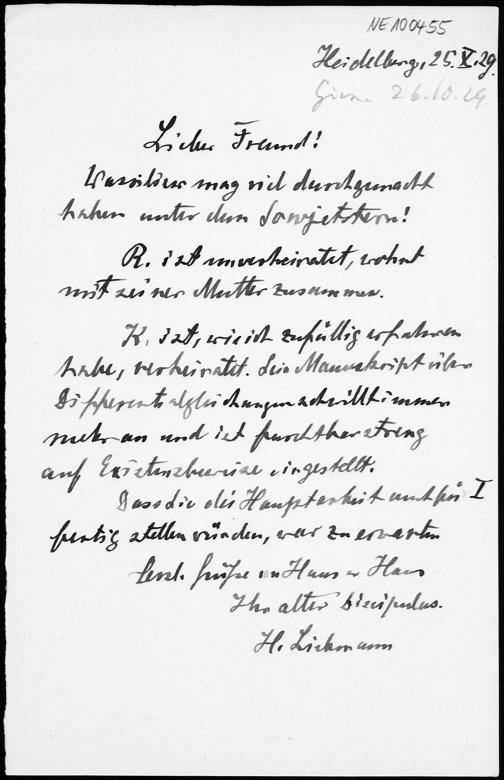 NE100455
Heidelberg, 25.X.29.
26.10.29.
Lieber Freund!
Wassiliew mag viel durchgemacht
haben unter dem Sowjetstern!
R. ist unverheiratet, wohnt
mit seiner Mutter zusammen.
K. ist, wie ich zufällig erfahren
habe, verheiratet. Sein Manuskript über
Differentialgleichungen schwillt immer
mehr an und ist furchtbar streng
auf Existenzbeweise eingestellt.
Dass die die Hauptarbeit auch für I
fertig stellen würden, war zu erwarten
herzl. Grüße von Haus zu Haus
Ihr alter Discipulus.
H. Liebmann